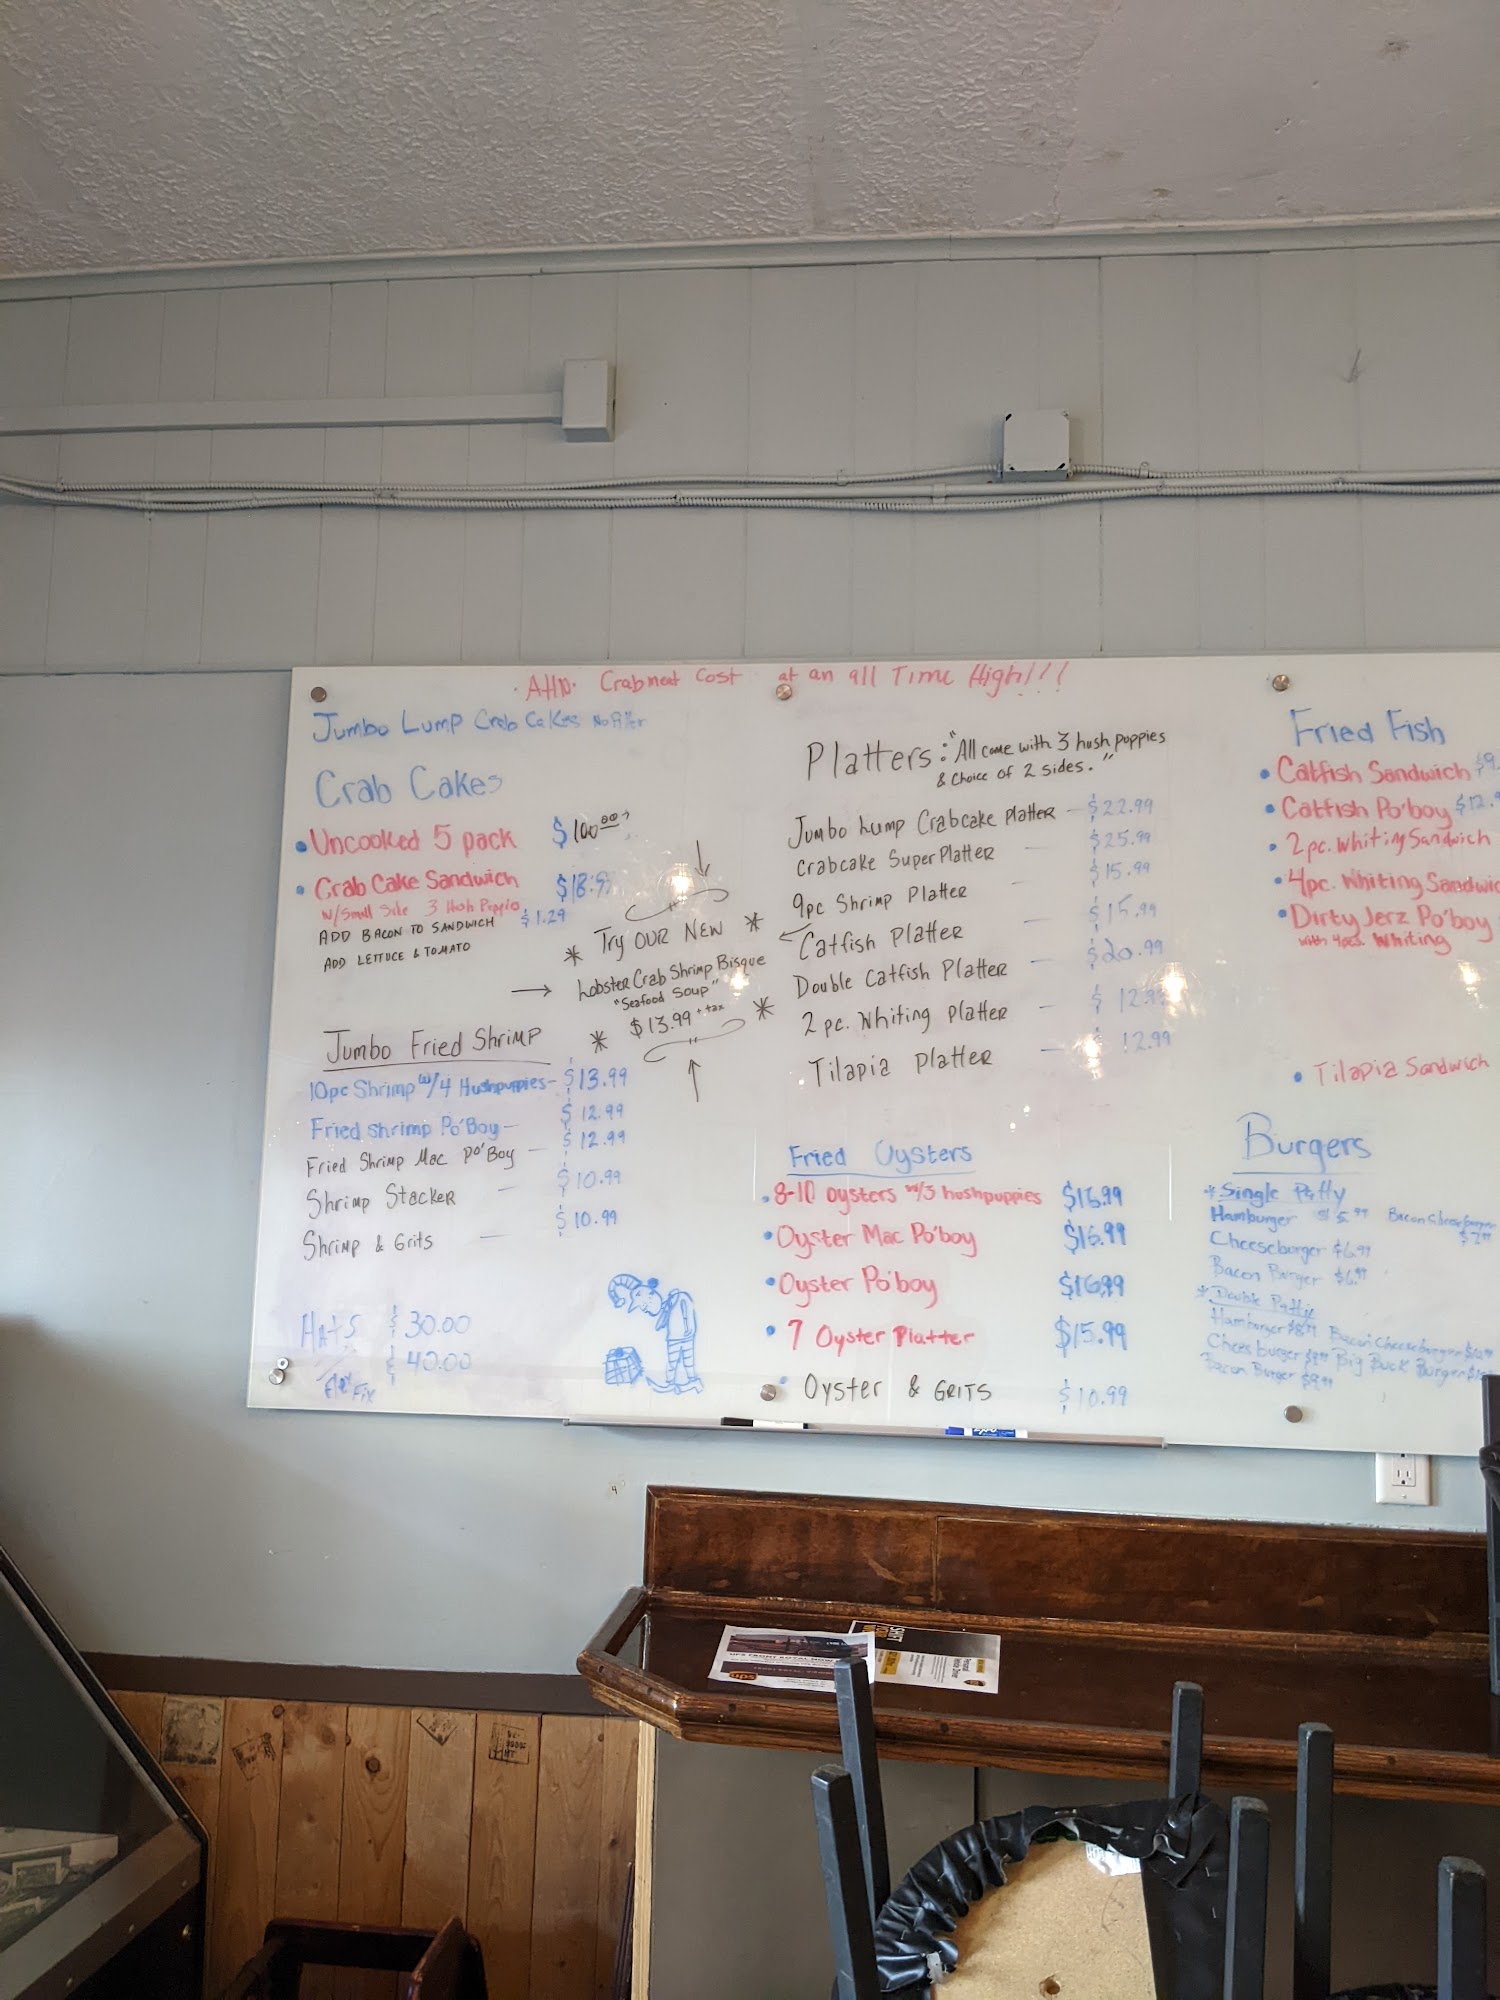 Attn. Crabmeat Cost at an all Time High!!!
Jumbo Lump Crab Cakes No Filler
Crab Cakes
• Uncooked 5 pack $100.00
• Crab Cake Sandwich $18.99
w/Small Side 3 Hush Puppies
ADD BACON TO SANDWICH $1.29
ADD LETTUCE & TOMATO
* Try OUR NEW *
Lobster Crab Shrimp Bisque
"Seafood Soup"
* $13.99 + tax *
Jumbo Fried Shrimp
10pc Shrimp w/4 Hushpuppies - $13.99
Fried Shrimp Po'Boy - $12.99
Fried Shrimp Mac Po'Boy - $12.99
Shrimp Stacker - $10.99
Shrimp & Grits - $10.99
Hats $30.00
Flex Fix $40.00
Platters: "All come with 3 hush puppies
& Choice of 2 sides."
Jumbo Lump Crabcake Platter - $22.99
Crabcake Super Platter - $25.99
9pc Shrimp Platter - $15.99
Catfish Platter - $15.99
Double Catfish Platter - $20.99
2 pc. Whiting Platter - $12.99
Tilapia Platter - 12.99
Fried Oysters
• 8-10 oysters w/3 hushpuppies $16.99
• Oyster Mac Po'boy $16.99
• Oyster Po'boy $16.99
• 7 Oyster Platter $15.99
• Oyster & GRITS $10.99
Fried Fish
• Catfish Sandwich $9.
• Catfish Po'boy $12.9
• 2pc. Whiting Sandwich
• 4pc. Whiting Sandwic
• Dirty Jerz Po'boy
with 4pcs. Whiting
• Tilapia Sandwich
Burgers
* Single Patty
Hamburger $5.99 Bacon Cheeseburger
$7.99
Cheeseburger $6.99
Bacon Burger $6.99
* Double Patty
Hamburger $8.99 Bacon Cheeseburger
Cheesburger Big Buck Burger
Bacon Burger $9.99
ups